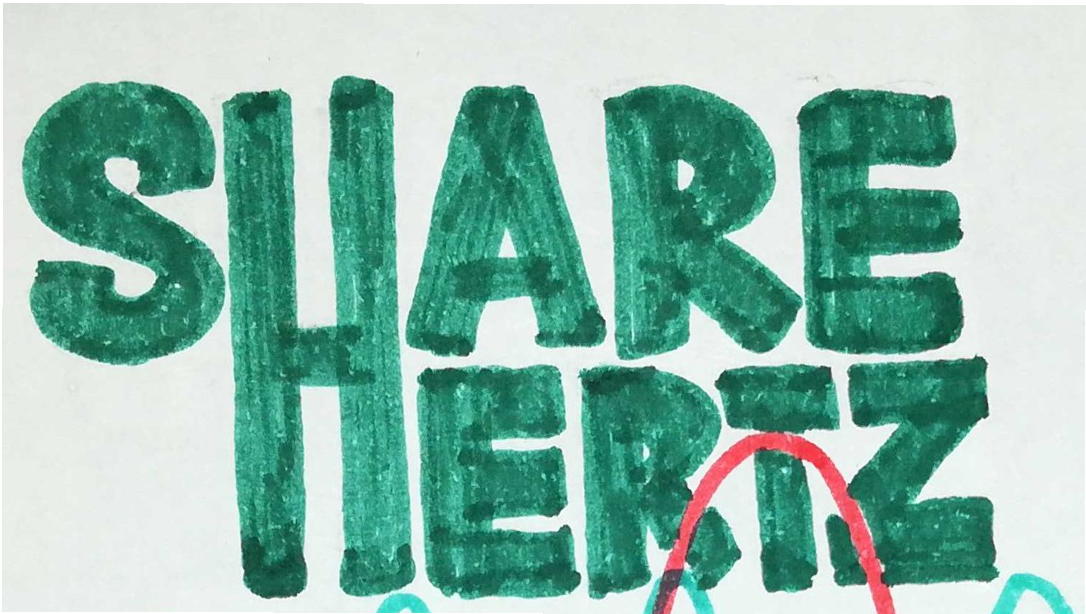 SHARE
HERTZ